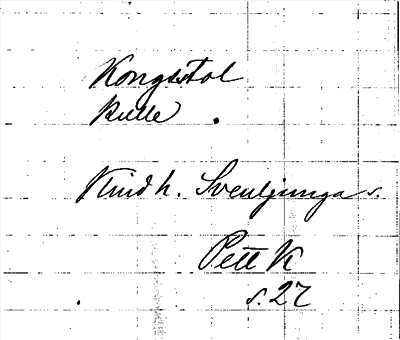 Kongstol
kulle
Kind h. Svenljunga s.
Pett K
s. 27